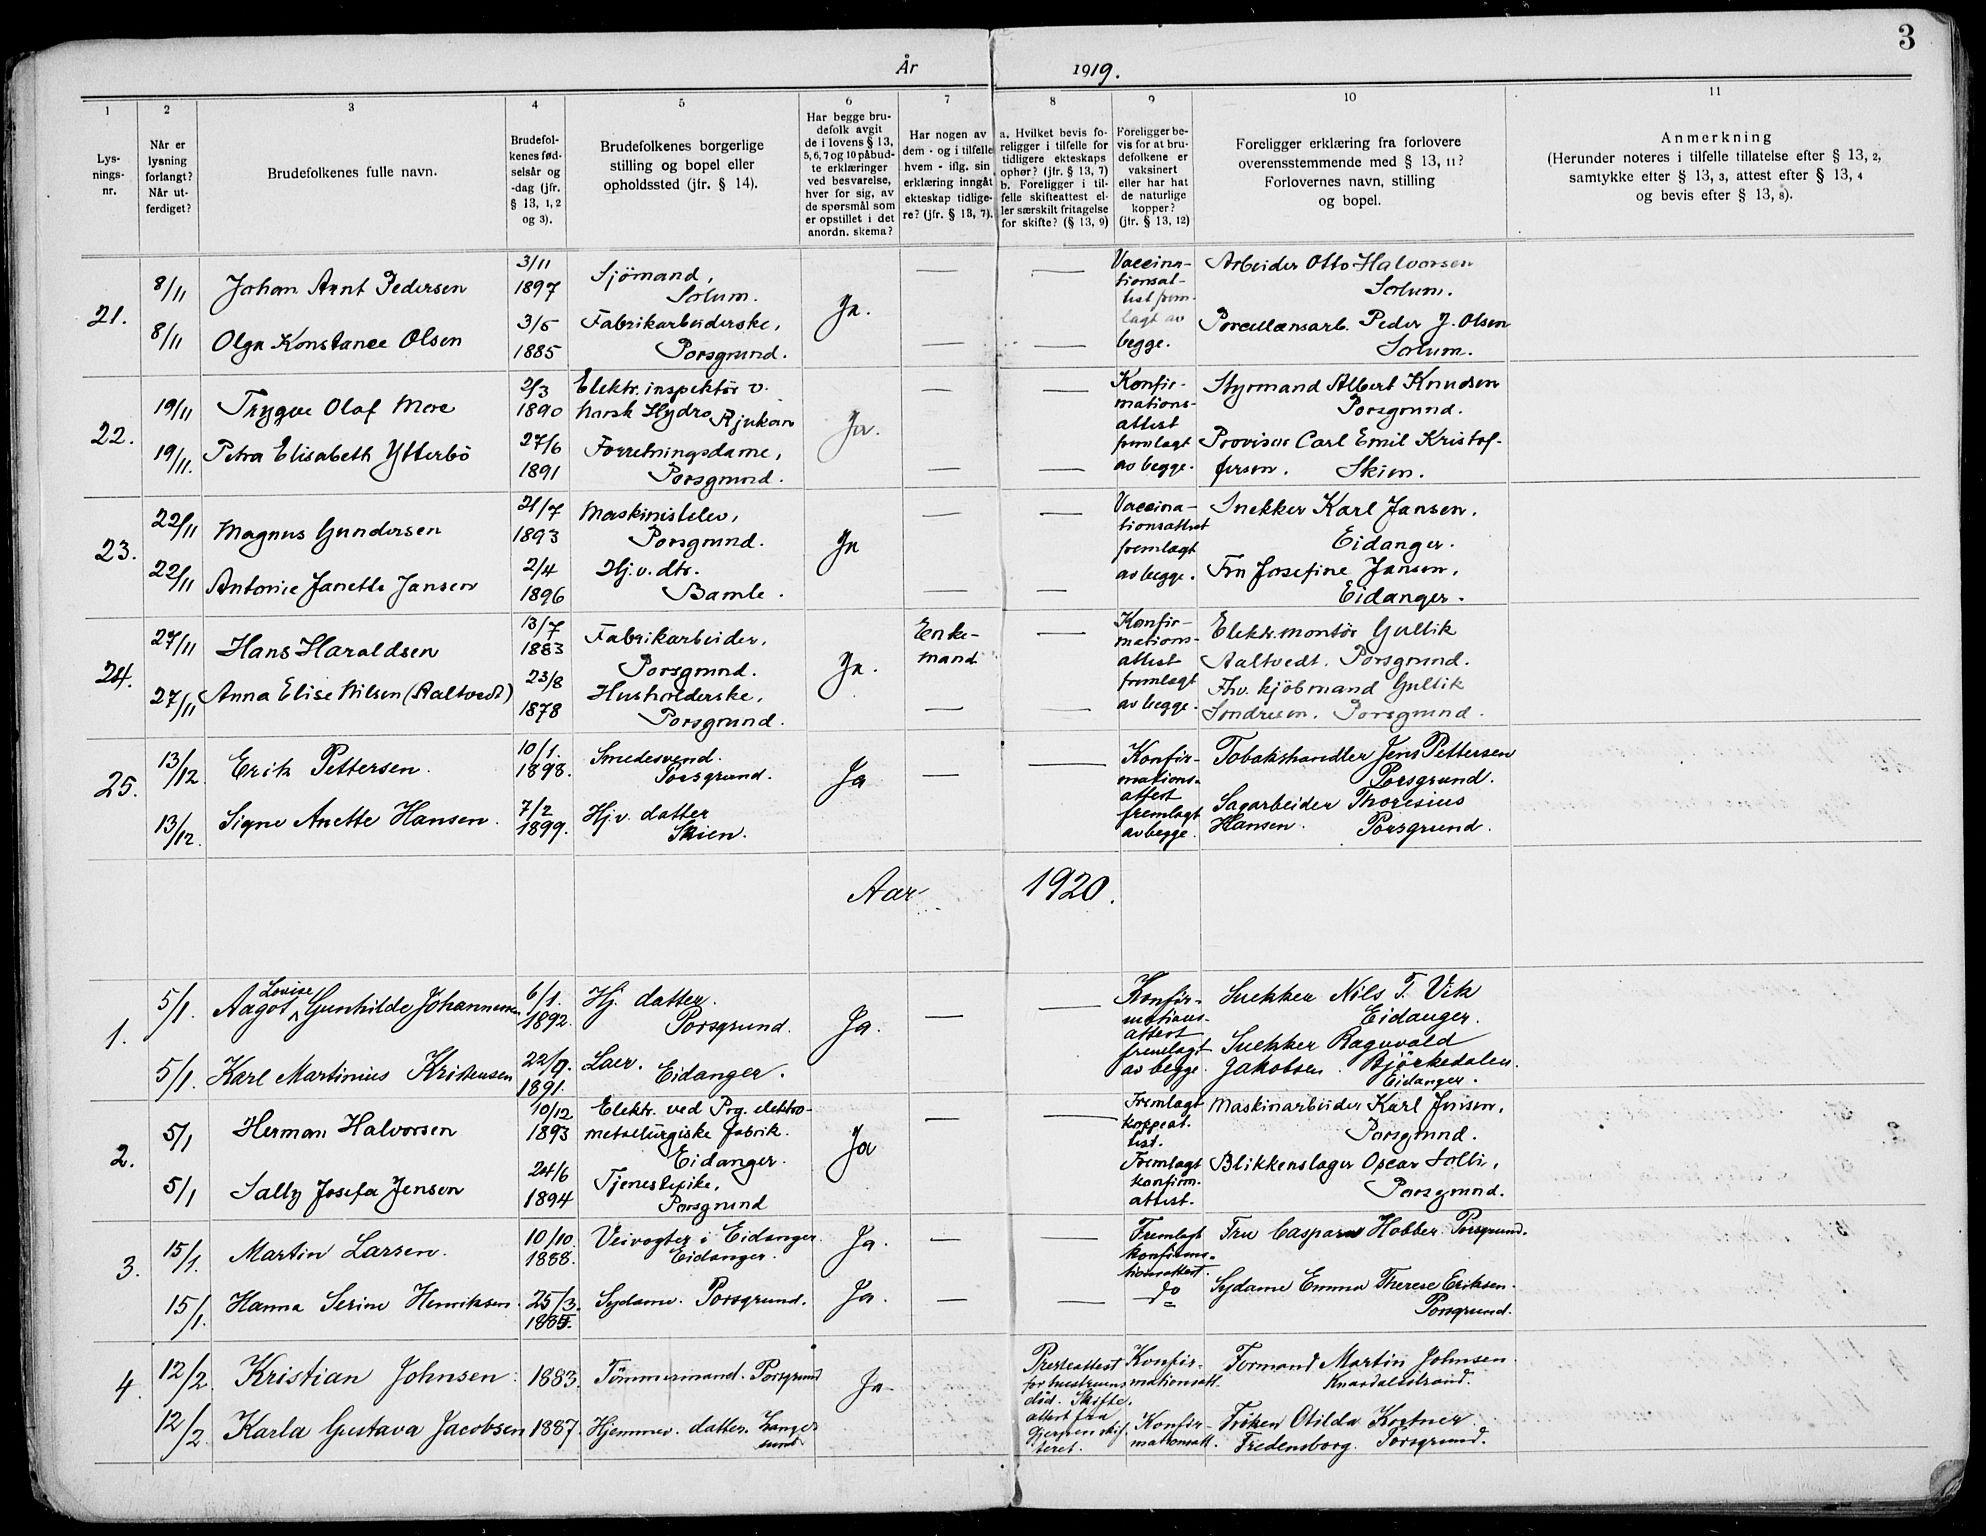 3
År 1919.
1 2 3 4 5 6 7 8 9 10 11
Lys-
nings-
nr.
Når er
lysning
forlangt?
Når ut-
ferdiget?
Brudefolkenes fulle navn.
Brudefol-
kenes fød-
selsår og
-dag (jfr.
§ 13, 1, 2
og 3).
Brudefolkenes borgerlige
stilling og bopel eller
opholdssted (jfr. § 14).
Har begge bru-
defolk avgit
de i lovens § 13,
5, 6, 7 og 10 påbud-
te erklæringer
ved besvarelse,
hver for sig, av
de spørsmål som
er opstillet i det
anordn. skema?
Har nogen av
dem - og i tilfelle
hvem - iflg. sin
erklæring inngåt
ekteskap tidlige-
re? (jfr. § 13, 7).
a. Hvilket bevis fo-
religger i tilfelle for
tidligere ekteskaps
ophør? (jfr. § 13, 7)
b. Foreligger i til-
felle skifteattest el-
ler særskilt fritagelse
for skifte? (§ 13, 9)
Foreligger be-
vis for at bru-
defolkene er
vaksinert
eller har hat
de naturlige
kopper?
(jfr. § 13, 12)
Foreligger erklæring fra forlovere
overensstemmende med § 13, 11?
Forlovernes navn, stilling
og bopel.
Anmerkning
(Herunder noteres i tilfelle tillatelse efter § 13, 2,
samtykke efter § 13, 3, attest efter § 13, 4
og bevis efter § 13, 8).
21.
8/11 Johan Arnt Pedersen 3/11 1897 Sjömand, Solum. — —
8/11 Olga Konstance Olsen 3/5 1885 Fabrikarbeiderske, Porsgrund. — —
Ja.
Vaccina-
tionsat-
test frem-
lagt av
begge.
Arbeider Otto Halvorsen
Solum.
Porcellænsarb. Peder J. Olsen
Solum.
22.
19/11 Trygve Olaf Moe 2/3 1890 Elektr. inspektör v. Norsk Hydro Rjukan — —
19/11. Petra Elisabeth Ytterbö 27/6 1891 Forretningsdame, Porsgrund. — —
Ja.
Konfir-
mations-
attest
fremlagt
av begge.
Styrmand Albert Knudsen
Porsgrund.
Provisor Carl Emil Kristof-
fersen. Skien.
23.
22/11 Magnus Gundersen 21/7 1893 Maskinistelev, Porsgrund. — —
22/11 Antonie Janette Jansen 2/4 1896 Hj.v. dtr. Bamle. — —
Ja
Vaccina-
tionsattest
fremlagt
av begge.
Snekker Karl Jansen,
Eidanger.
Fru Josefine Jansen,
Eidanger.
24.
27/11 Hans Haraldsen 13/7 1883 Fabrikarbeider, Porsgrund. Enke-
mand —
27/11 Anna Elise Nilsen (Aaltvedt) 23/8 1878 Husholderske, Porsgrund. — —
Ja.
Konfir-
mations-
attest
fremlagt
av begge.
Elektr. montör Gullik
Aaltvedt. Porsgrund.
Fhv. kjöbmand Gullik
Sondresen. Porsgrund.
25.
13/12 Erik Pettersen. 10/1. 1898. Smedesvend. Porsgrund. — —
13/12. Signe Anette Hansen. 7/2 1899. Hj.v. datter Skien.
Ja
Konfir-
mations-
attest
fremlagt
av begge.
Tobakshandler Jens Pettersen
Porsgrund.
Sagarbeider Thoresius
Hansen. Porsgrund.
Aar 1920.
1.
5/1. Aagot Lovise Gunhilde Johannesen 6/1. 1892. Hj. datter. Porsgrund. — —
5/1. Karl Martinius Kristensen 22/9. 1891. Laer. Eidanger.
Ja.
Konfir-
mations-
attest
fremlagt
av begge.
Snekker Nils T. Vik
Eidanger.
Snekker Ragnvald
Jakobsen. Björkedalen.
Eidanger.
2.
5/1 Herman Halvorsen 10/12 1893 Elektr. ved Prg. elektro-
metallurgiske fabrik. Eidanger. — —
5/1 Sally Josefa Jensen 24/6 1894 Tjenestepike, Porsgrund
Ja
Fremlagt
koppeat.
test.
Fremlagt
konfirm.
attest.
Maskinarbeider Karl Jensen,
Porsgrund.
Blikkenslager Oscar Solli,
Porsgrund.
3.
15/1. Martin Larsen. 10/10. 1888. Veivogter i Eidanger. Eidanger. Ja. — —
Fremlagt
konfirma-
tionsattest.
Fru Caspara Hobber. Porsgrund.
15/1. Hanna Serine Henriksen. 25/3. Sydame. Porsgrund. Ja. — —
do
Sydame Emma Therese Eriksen.
Porsgrund.
4.
12/2. Kristian Johnsen. 1883. Tömmermand. Porsgrund Ja
Presteattest
for hustruens
död. Skifte-
attest fra
Gjerpen skif-
teret.
Konfir-
mationsatt.
Formand Martin Johnsen.
Knardalsstrand.
12/2. Karla Gustava Jacobsen 1887. Hjemmev. datter. Lange-
sund
Konfir-
mationsatt.
Fröken Otilda Kortner.
Fredensborg. Porsgrund.